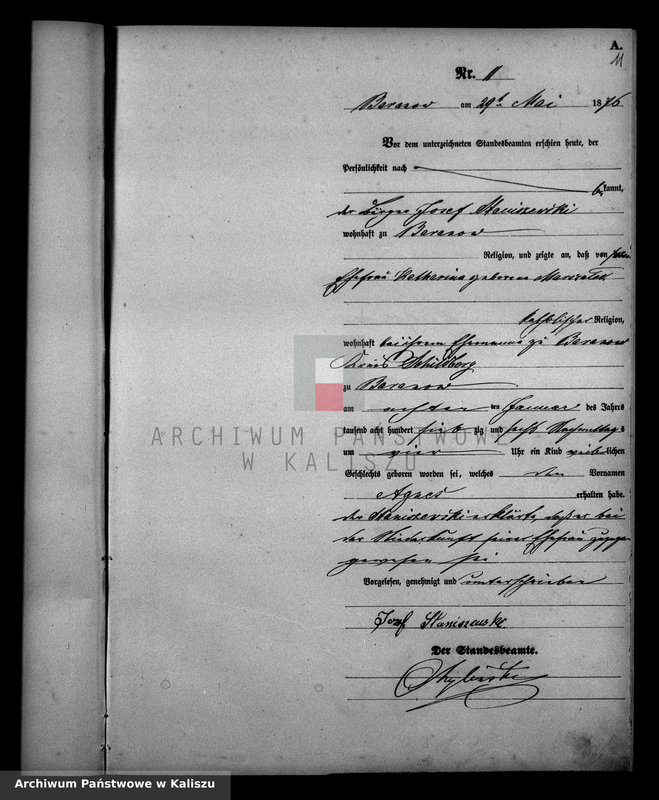 A.
11
Nr. 11
Baranow am 29t Mai 1876
Vor dem unterzeichneten Standesbeamten erschien heute, der
Persönlichkeit nach
bekannt,
der Bürger Josef Staniszewski
wohnhaft zu Baranow
Religion, und zeigte an, daß von
Ehefrau Katharina geborene
katholischer Religion,
wohnhaft bei ihrem Ehemanne zu Baranow
Kreis Schildberg
zu Baranow
am achten ten Januar des Jahres
tausend acht hundert siebzig und sechs Nachmittags
um vier Uhr ein Kind weiblichen
Geschlechts geboren worden sei, welches den Vornamen
Agnes erhalten habe.
der Staniszewski erklärte, daß er bei
der Niederkunft seiner Ehefrau zugegen
gewesen sei
Vorgelesen, genehmigt und unterschrieben
Jozef Staniszewski
Der Standesbeamte.
ARCHIWUM PAŃSTWOWE
W KALISZU
Archiwum Państwowe w Kaliszu